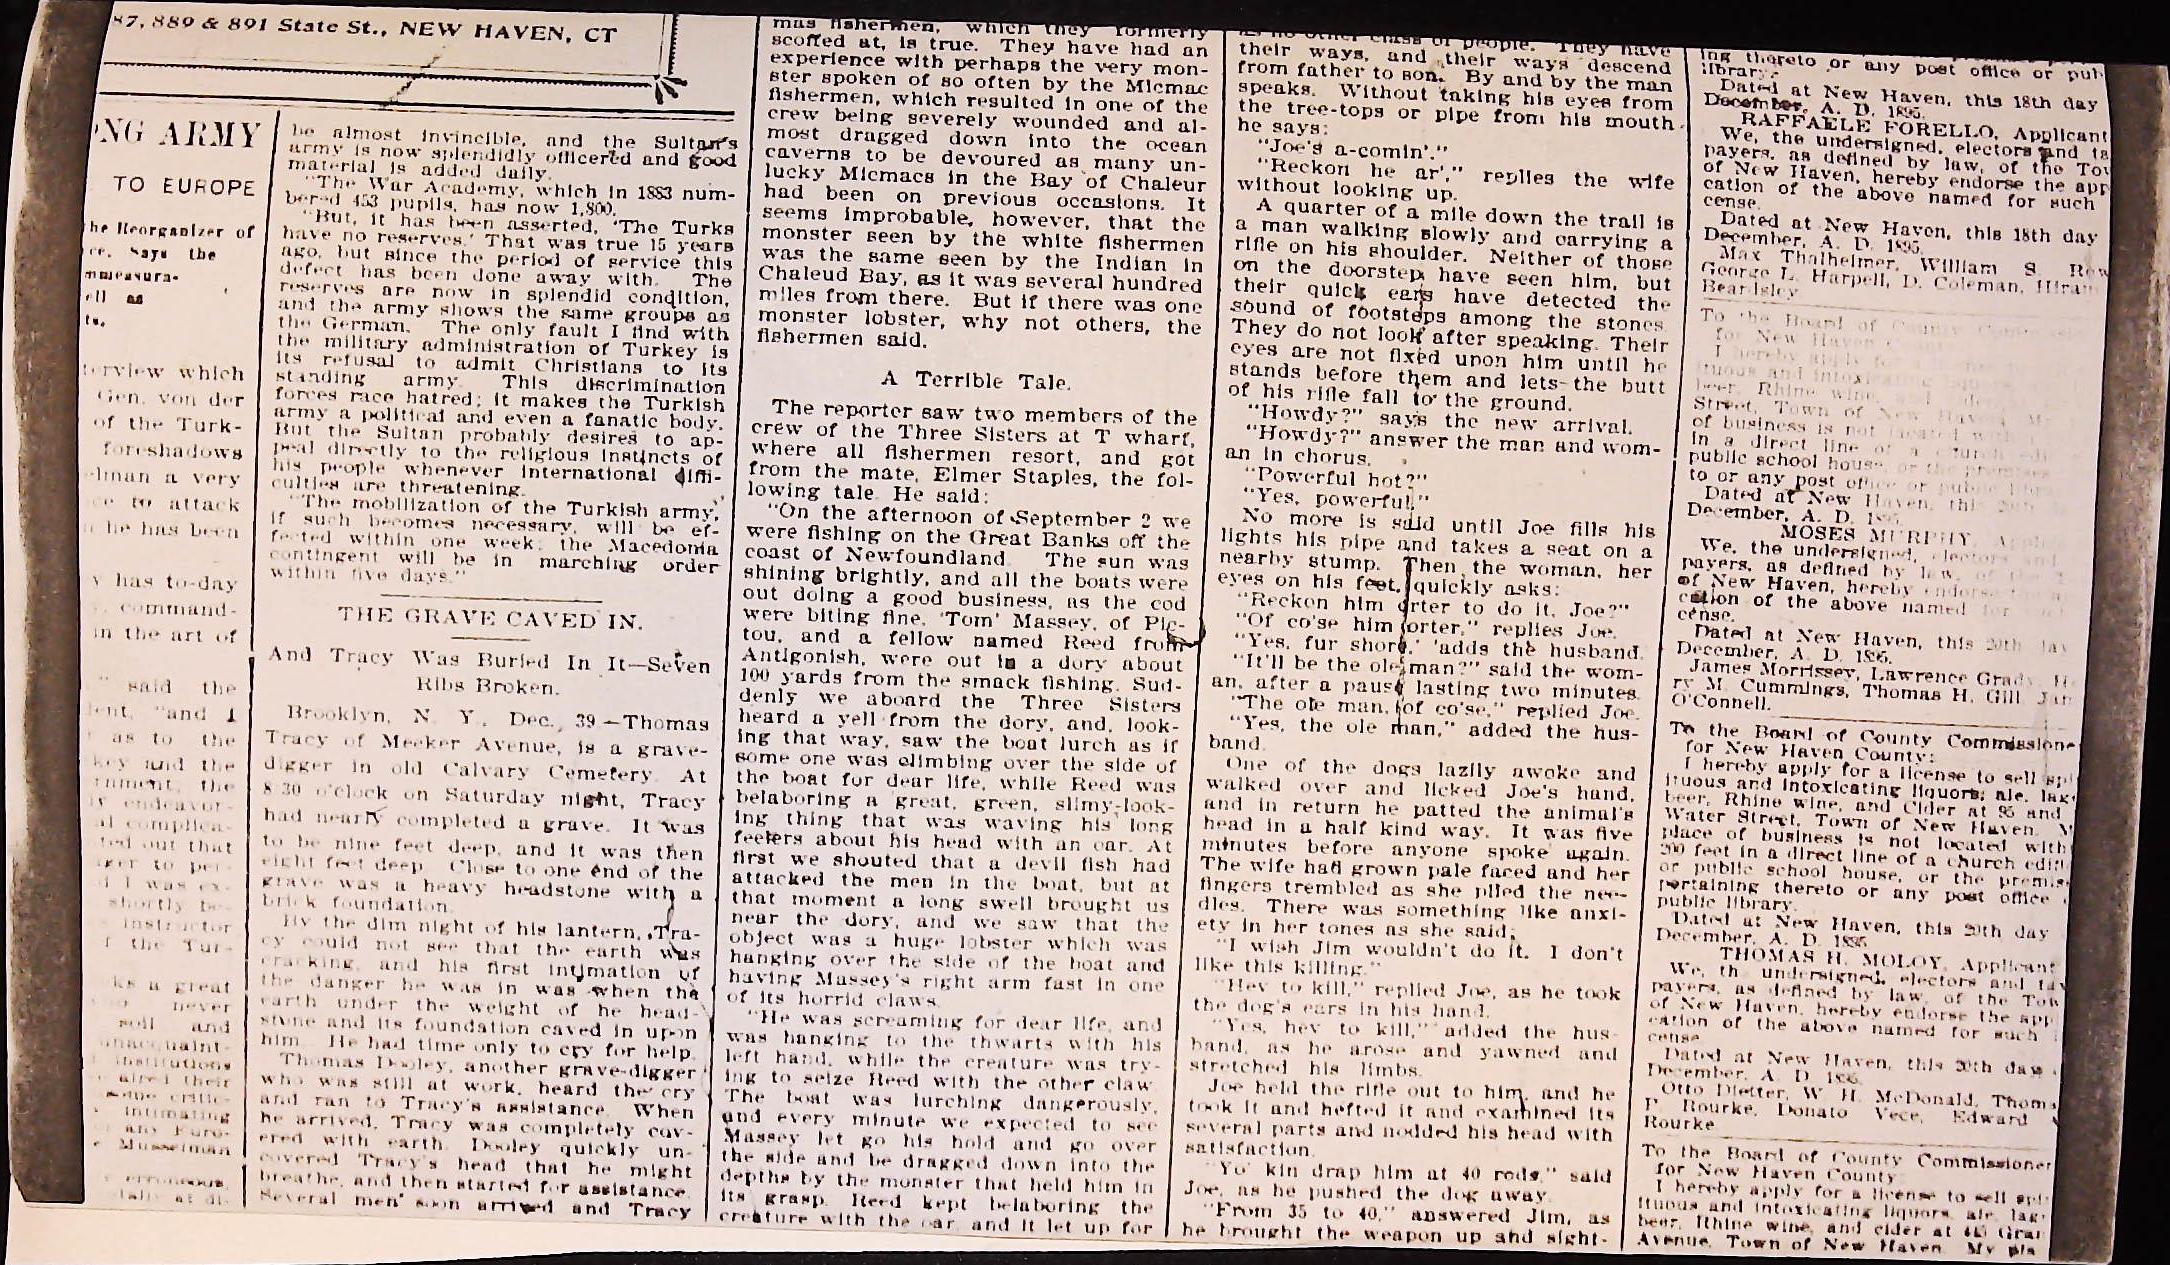 87, 889 & 891 State St., NEW HAVEN, CT
ARMY
TO EUROPE
Reorganizer of
Says the
which
Gen. von der
of the Turk-
foreshadows
a very
to attack
he has been
has to-day
command-
in the art of
said the
"and I
as to the
and the
the
that
to per-
I was ex-
shortly be-
instructor
the Tur-
a great
never
soil and
institutions
their
intimating
any Euro-
Musselman
erroneous,
be almost invincible, and the Sultan's
army is now splendidly officered and good
material is added daily.
"The War Academy, which in 1883 num-
bered 453 pupils, has now 1,800.
"But, it has been asserted, 'The Turks
have no reserves.' That was true 15 years
ago, but since the period of service this
defect has been done away with. The
reserves are now in splendid condition,
and the army shows the same groups as
the German. The only fault I find with
the military administration of Turkey is
its refusal to admit Christians to its
standing army. This discrimination
forces race hatred; it makes the Turkish
army a political and even a fanatic body.
But the Sultan probably desires to ap-
peal directly to the religious instincts of
his people whenever international diffi-
culties are threatening.
"The mobilization of the Turkish army,
if such becomes necessary, will be ef-
fected within one week; the Macedonia
contingent will be in marching order
within five days."
THE GRAVE CAVED IN.
And Tracy Was Buried In It—Seven
Ribs Broken.
Brooklyn, N. Y., Dec. 39—Thomas
Tracy of Meeker Avenue, is a grave-
digger in old Calvary Cemetery. At
8 30 o'clock on Saturday night, Tracy
had nearly completed a grave. It was
to be nine feet deep, and it was then
eight feet deep. Close to one end of the
grave was a heavy headstone with a
brick foundation.
By the dim night of his lantern, Tra-
cy could not see that the earth was
cracking, and his first intimation of
the danger he was in was when the
earth under the weight of he head-
stone and its foundation caved in upon
him. He had time only to cry for help.
Thomas Dooley, another grave-digger
who was still at work, heard the cry
and ran to Tracy's assistance. When
he arrived, Tracy was completely cov-
ered with earth. Dooley quickly un-
covered Tracy's head that he might
breathe, and then started for assistance.
Several men soon arrived and Tracy
mas fishermen, which they formerly
scoffed at, is true. They have had an
experience with perhaps the very mon-
ster spoken of so often by the Micmac
fishermen, which resulted in one of the
crew being severely wounded and al-
most dragged down into the ocean
caverns to be devoured as many un-
lucky Micmacs in the Bay of Chaleur
had been on previous occasions. It
seems improbable, however, that the
monster seen by the white fishermen
was the same seen by the Indian in
Chaleud Bay, as it was several hundred
miles from there. But if there was one
monster lobster, why not others, the
fishermen said.
A Terrible Tale.
The reporter saw two members of the
crew of the Three Sisters at T wharf,
where all fishermen resort, and got
from the mate, Elmer Staples, the fol-
lowing tale. He said:
"On the afternoon of September 2 we
were fishing on the Great Banks off the
coast of Newfoundland. The sun was
shining brightly, and all the boats were
out doing a good business, as the cod
were biting fine. 'Tom' Massey, of Pic-
tou, and a fellow named Reed from
Antigonish, were out in a dory about
100 yards from the smack fishing. Sud-
denly we aboard the Three Sisters
heard a yell from the dory, and, look-
ing that way, saw the boat lurch as if
some one was climbing over the side of
the boat for dear life, while Reed was
belaboring a great, green, slimy-look-
ing thing that was waving his long
feelers about his head with an oar. At
first we shouted that a devil fish had
attacked the men in the boat, but at
that moment a long swell brought us
near the dory, and we saw that the
object was a huge lobster which was
hanging over the side of the boat and
having Massey's right arm fast in one
of its horrid claws.
"He was screaming for dear life, and
was hanging to the thwarts with his
left hand, while the creature was try-
ing to seize Reed with the other claw.
The boat was lurching dangerously,
and every minute we expected to see
Massey let go his hold and go over
the side and be dragged down into the
depths by the monster that held him in
its grasp. Reed kept belaboring the
creature with the oar, and it let up for
as no other class of people. They have
their ways, and their ways descend
from father to son. By and by the man
speaks. Without taking his eyes from
the tree-tops or pipe from his mouth
he says:
"Joe's a-comin'."
"Reckon he ar'," replies the wife
without looking up.
A quarter of a mile down the trail is
a man walking slowly and carrying a
rifle on his shoulder. Neither of those
on the doorstep have seen him, but
their quick ears have detected the
sound of footsteps among the stones.
They do not look after speaking. Their
eyes are not fixed upon him until he
stands before them and lets the butt
of his rifle fall to the ground.
"Howdy?" says the new arrival.
"Howdy?" answer the man and wom-
an in chorus.
"Powerful hot?"
"Yes, powerful."
No more is said until Joe fills his
lights his pipe and takes a seat on a
nearby stump. Then the woman, her
eyes on his feet, quickly asks:
"Reckon him orter to do it, Joe?"
"Of co'se him orter," replies Joe.
"Yes, fur shore,' 'adds the husband.
"It'll be the ole man?" said the wom-
an, after a pause lasting two minutes.
"The ole man, of co'se," replied Joe.
"Yes, the ole man," added the hus-
band.
One of the dogs lazily awoke and
walked over and licked Joe's hand,
and in return he patted the animal's
head in a half kind way. It was five
minutes before anyone spoke again.
The wife had grown pale faced and her
fingers trembled as she plied the nee-
dles. There was something like anxi-
ety in her tones as she said:
"I wish Jim wouldn't do it. I don't
like this killing."
"Hev to kill," replied Joe, as he took
the dog's ears in his hand.
"Yes, hev to kill," added the hus-
band, as he arose and yawned and
stretched his limbs.
Joe held the rifle out to him, and he
took it and hefted it and examined its
several parts and nodded his head with
satisfaction.
"Yo' kin drap him at 40 rods," said
Joe, as he pushed the dog away.
"From 35 to 40," answered Jim, as
he brought the weapon up and sight-
ing thereto or any post office or pub
library.
Dated at New Haven, this 18th day
December, A. D. 1895.
RAFFAELE FORELLO, Applicant
We, the undersigned, electors and ta
payers, as defined by law, of the Tow
of New Haven, hereby endorse the app
cation of the above named for such
cense.
Dated at New Haven, this 18th day
December, A. D. 1895.
Max Thalheimer, William S. Row
George L. Harpell, D. Coleman, Hiram
Beardsley.
To the Board of County
for New Haven
I hereby apply
ituous and intoxicating
beer, Rhine wine,
Street, Town of New Haven. M
of business is not located
in a direct line of a church
public school house, or the premises
to or any post office or public
Dated at New Haven, this 20th
December, A. D. 1895.
MOSES MURPHY,
We, the undersigned, electors and
payers, as defined by law, of the
of New Haven, hereby endorse
cation of the above named for
cense.
Dated at New Haven, this 20th day
December, A. D. 1895.
James Morrissey, Lawrence Grady, H
ry M. Cummings, Thomas H. Gill,
O'Connell.
To the Board of County Commissione
for New Haven County:
I hereby apply for a license to sell spi
ituous and intoxicating liquors; ale, lag
beer, Rhine wine, and Cider at 95 and
Water Street, Town of New Haven. M
place of business is not located with
200 feet in a direct line of a church edif
or public school house, or the premis
pertaining thereto or any post office
public library.
Dated at New Haven, this 20th day
December, A. D. 1895.
THOMAS H. MOLOY, Applicant
We, th undersigned, electors and tax
payers, as defined by law, of the Tow
of New Haven, hereby endorse the app
cation of the above named for such
cense.
Dated at New Haven, this 20th day
December, A. D. 1895.
Otto Dietter, W. H. McDonald, Thoma
F. Rourke, Donato Vece, Edward
Rourke
To the Board of County Commissioner
for New Haven County:
I hereby apply for a license to sell spi
ituous and intoxicating liquors, ale, lag
beer, Rhine wine, and cider at Gran
Avenue, Town of New Haven. My pla